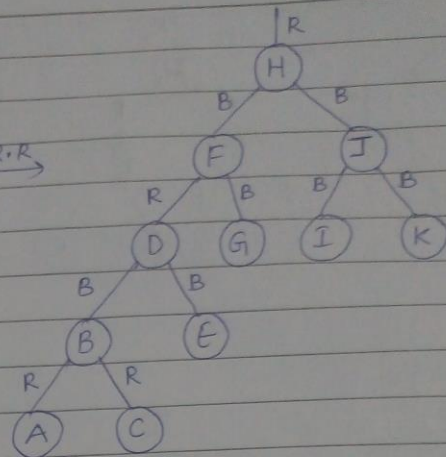 R
H
B B
F J
R B B B
D G I K
B B
B E
R R
A C